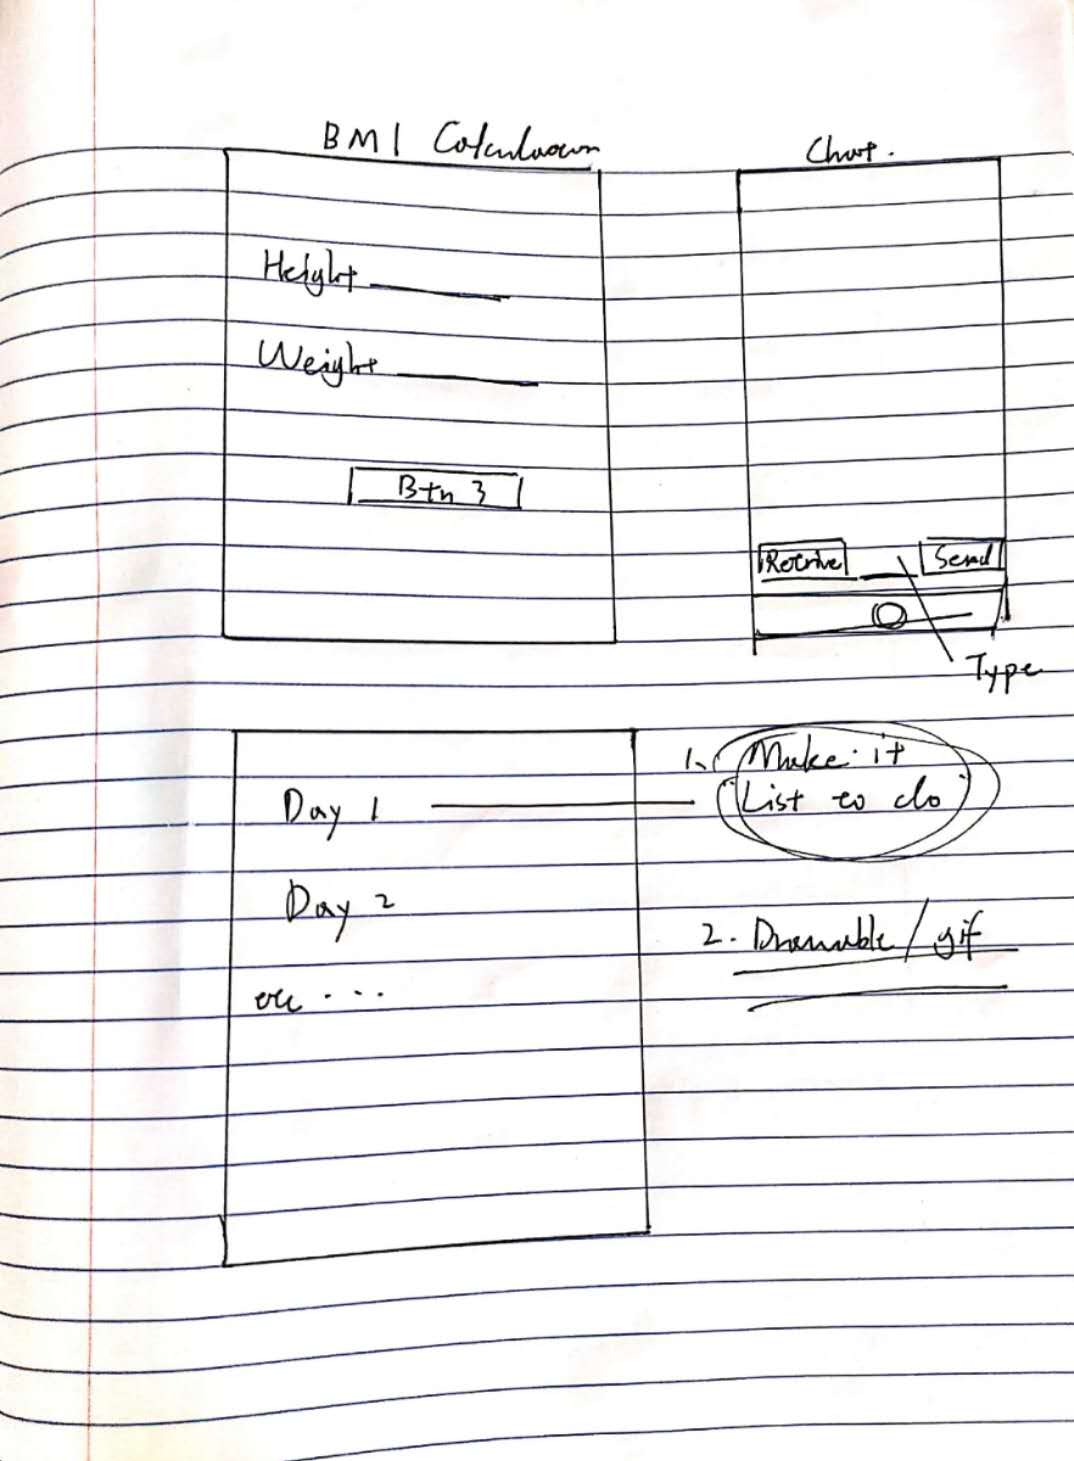 BMI Calculator
Height
Weight
Btn 3
Chat.
Retrive
Send
Type
Day 1
Day 2
1. Make it
"List to do"
2. Drawable / gif